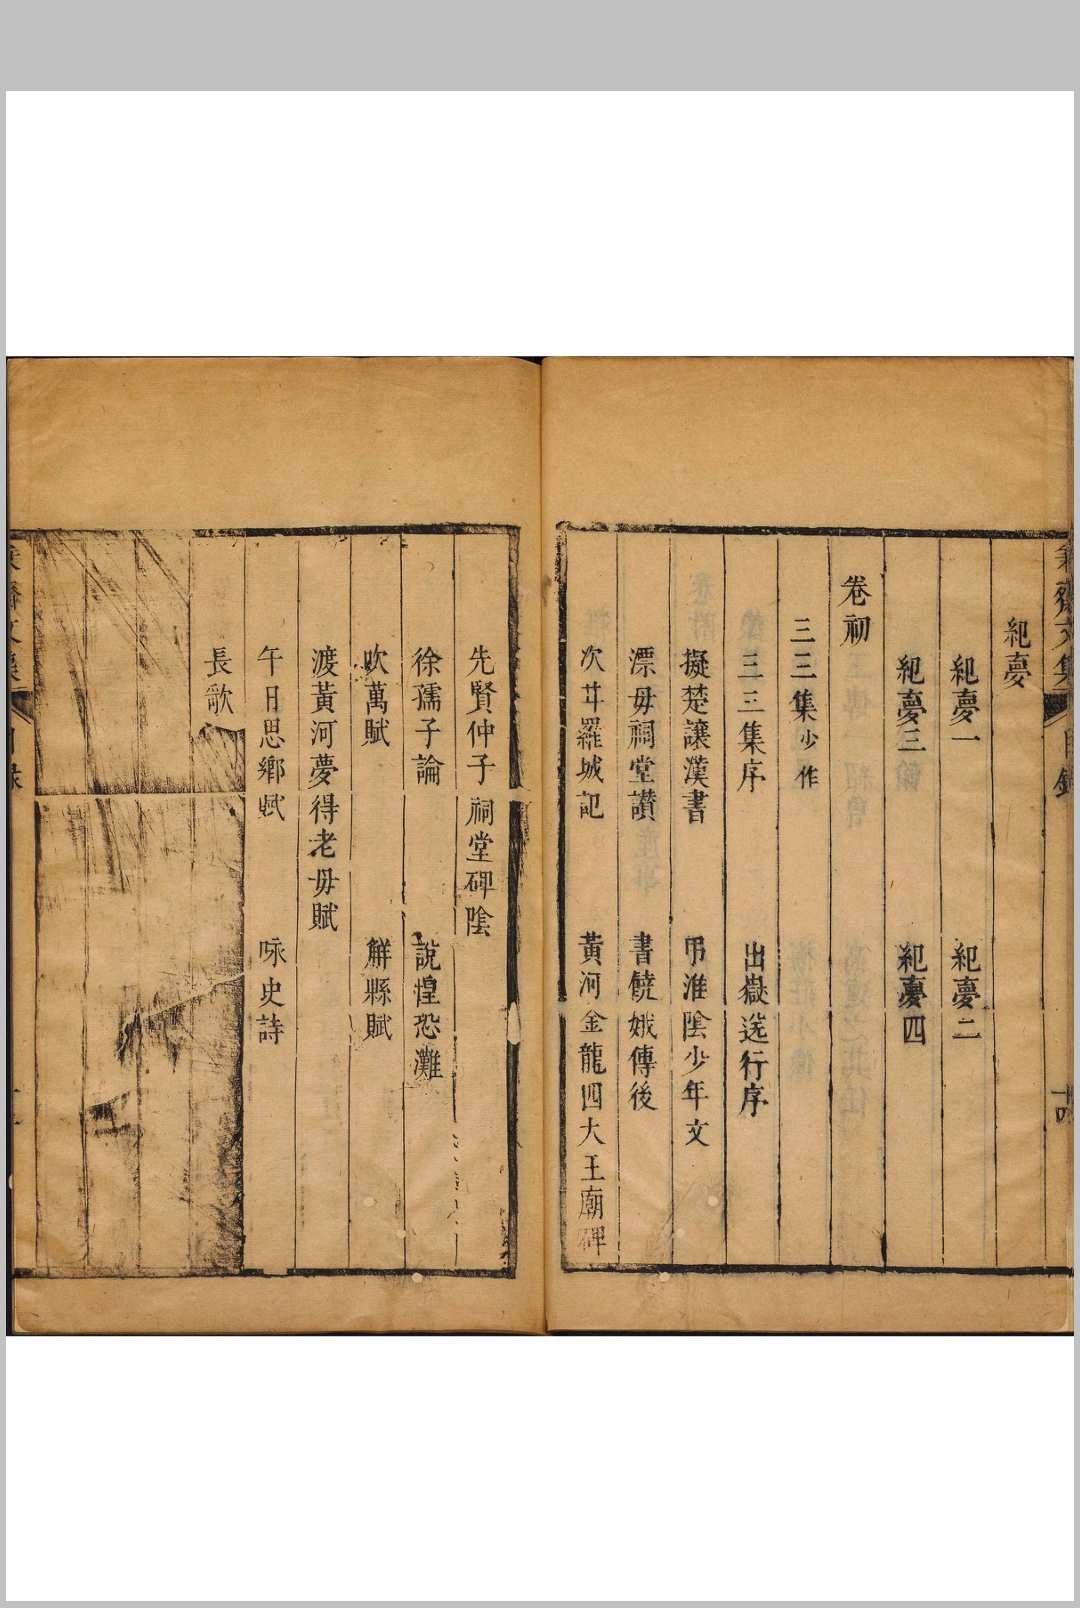 齋文集 目錄 十四
紀夢
紀夢一 紀夢二
紀夢三 紀夢四
卷初
三三集少作
三三集序 出嶽遊行序
擬楚讓漢書 弔淮陰少年文
漂毋祠堂讃 書饒娥傳後
次廿羅城記 黃河金龍四大王廟碑
先賢仲子祠堂碑陰
徐孺子論 說惶恐灘
吹萬賦 觧縣賦
渡黃河夢得老毋賦
午日思鄉賦 咏史詩
長歌
齋文集 目錄